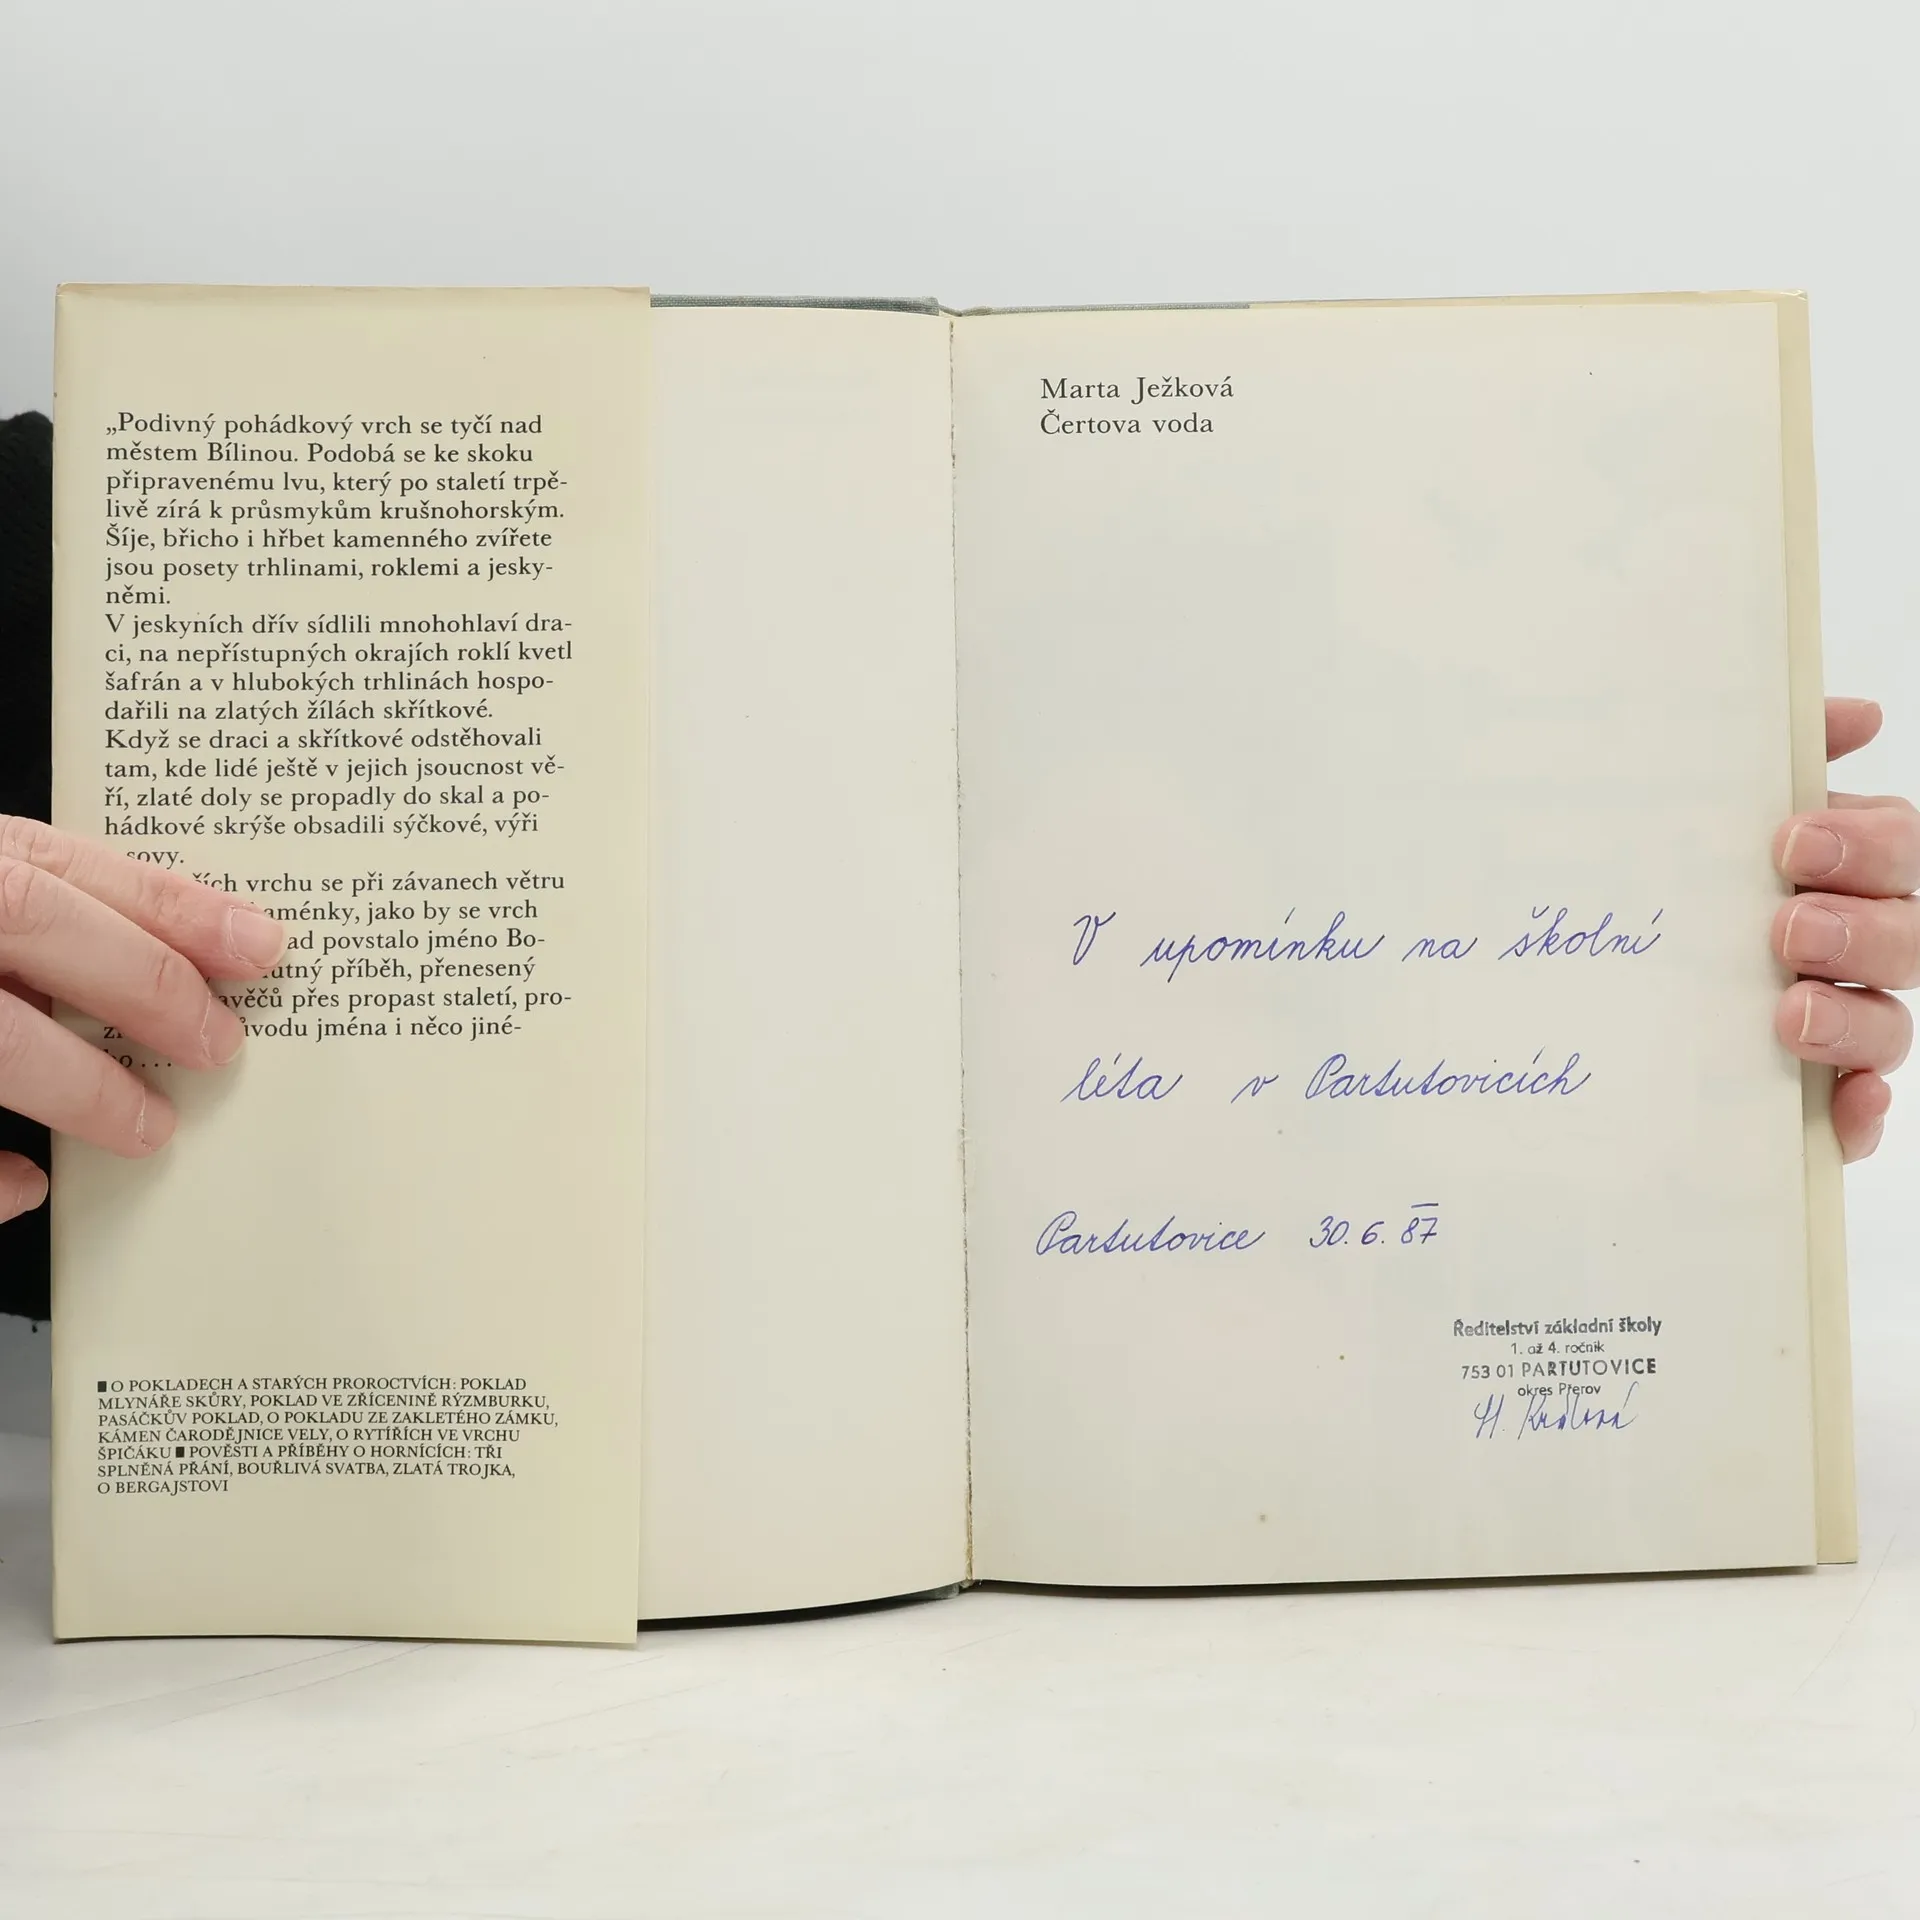 „Podivný pohádkový vrch se tyčí nad
městem Bílinou. Podobá se ke skoku
připravenému lvu, který po staletí trpě-
livě zírá k průsmykům krušnohorským.
Šíje, břicho i hřbet kamenného zvířete
jsou posety trhlinami, roklemi a jesky-
němi.
V jeskyních dřív sídlili mnohohlaví dra-
ci, na nepřístupných okrajích roklí kvetl
šafrán a v hlubokých trhlinách hospo-
dařili na zlatých žílách skřítkové.
Když se draci a skřítkové odstěhovali
tam, kde lidé ještě v jejich jsoucnost vě-
ří, zlaté doly se propadly do skal a po-
hádkové skrýše obsadili sýčkové, výři
sovy.
vrchu se při závanech větru
kaménky, jako by se vrch
povstalo jméno Bo-
příběh, přenesený
přes propast staletí, pro-
jména i něco jiné-
ho . . .
■ O POKLADECH A STARÝCH PROROCTVÍCH: POKLAD
MLYNÁŘE SKŮRY, POKLAD VE ZŘÍCENINĚ RÝZMBURKU,
PASÁČKŮV POKLAD, O POKLADU ZE ZAKLETÉHO ZÁMKU,
KÁMEN ČARODĚJNICE VELY, O RYTÍŘÍCH VE VRCHU
ŠPIČÁKU ■ POVĚSTI A PŘÍBĚHY O HORNÍCÍCH: TŘI
SPLNĚNÁ PŘÁNÍ, BOUŘLIVÁ SVATBA, ZLATÁ TROJKA,
O BERGAJSTOVI
Marta Ježková
Čertova voda
V upomínku na školní
léta v Partutovicích
Partutovice 30. 6. 87
Ředitelství základní školy
1. až 4. ročník
753 01 PARTUTOVICE
okres Přerov
H. Králová